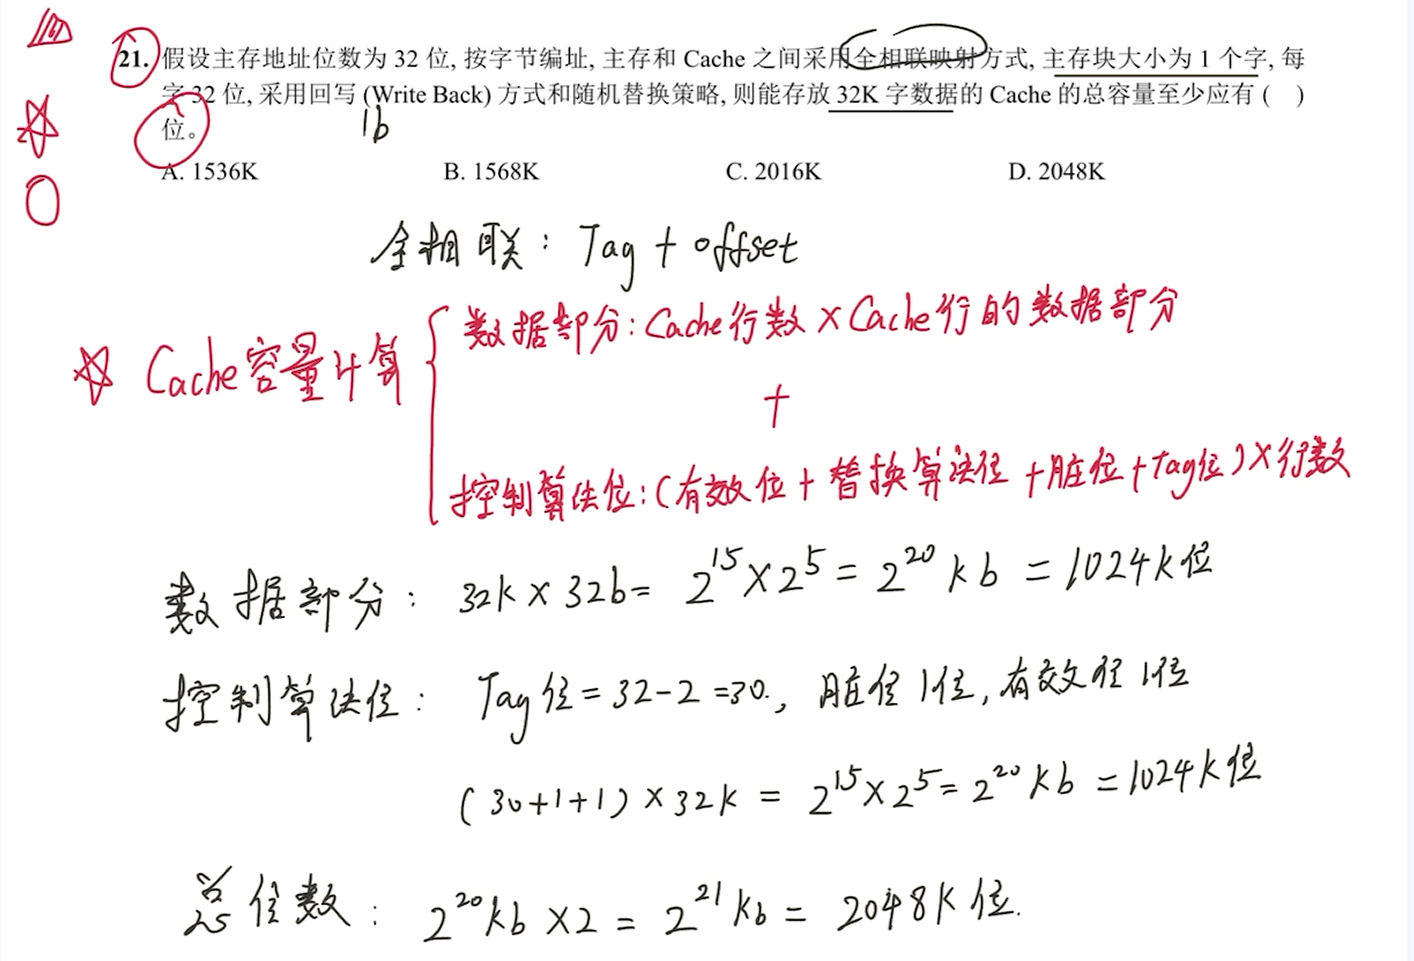 21. 假设主存地址位数为 32 位, 按字节编址, 主存和 Cache 之间采用全相联映射方式, 主存块大小为 1 个字, 每
字 32 位, 采用回写 (Write Back) 方式和随机替换策略, 则能存放 32K 字数据的 Cache 的总容量至少应有 ( )
位。 1b
A. 1536K B. 1568K C. 2016K D. 2048K
全相联: Tag + offset
数据部分: Cache行数 × Cache行的数据部分
☆ Cache容量计算
+
控制算法位: (有效位 + 替换算法位 + 脏位 + Tag位) × 行数
数据部分: 32K × 32b = 2^15 × 2^5 = 2^20 kb = 1024K位
控制算法位: Tag位 = 32-2 = 30., 脏位1位, 有效位1位
(30+1+1) × 32K = 2^15 × 2^5 = 2^20 kb = 1024K位
总位数: 2^20 kb × 2 = 2^21 kb = 2048K位.